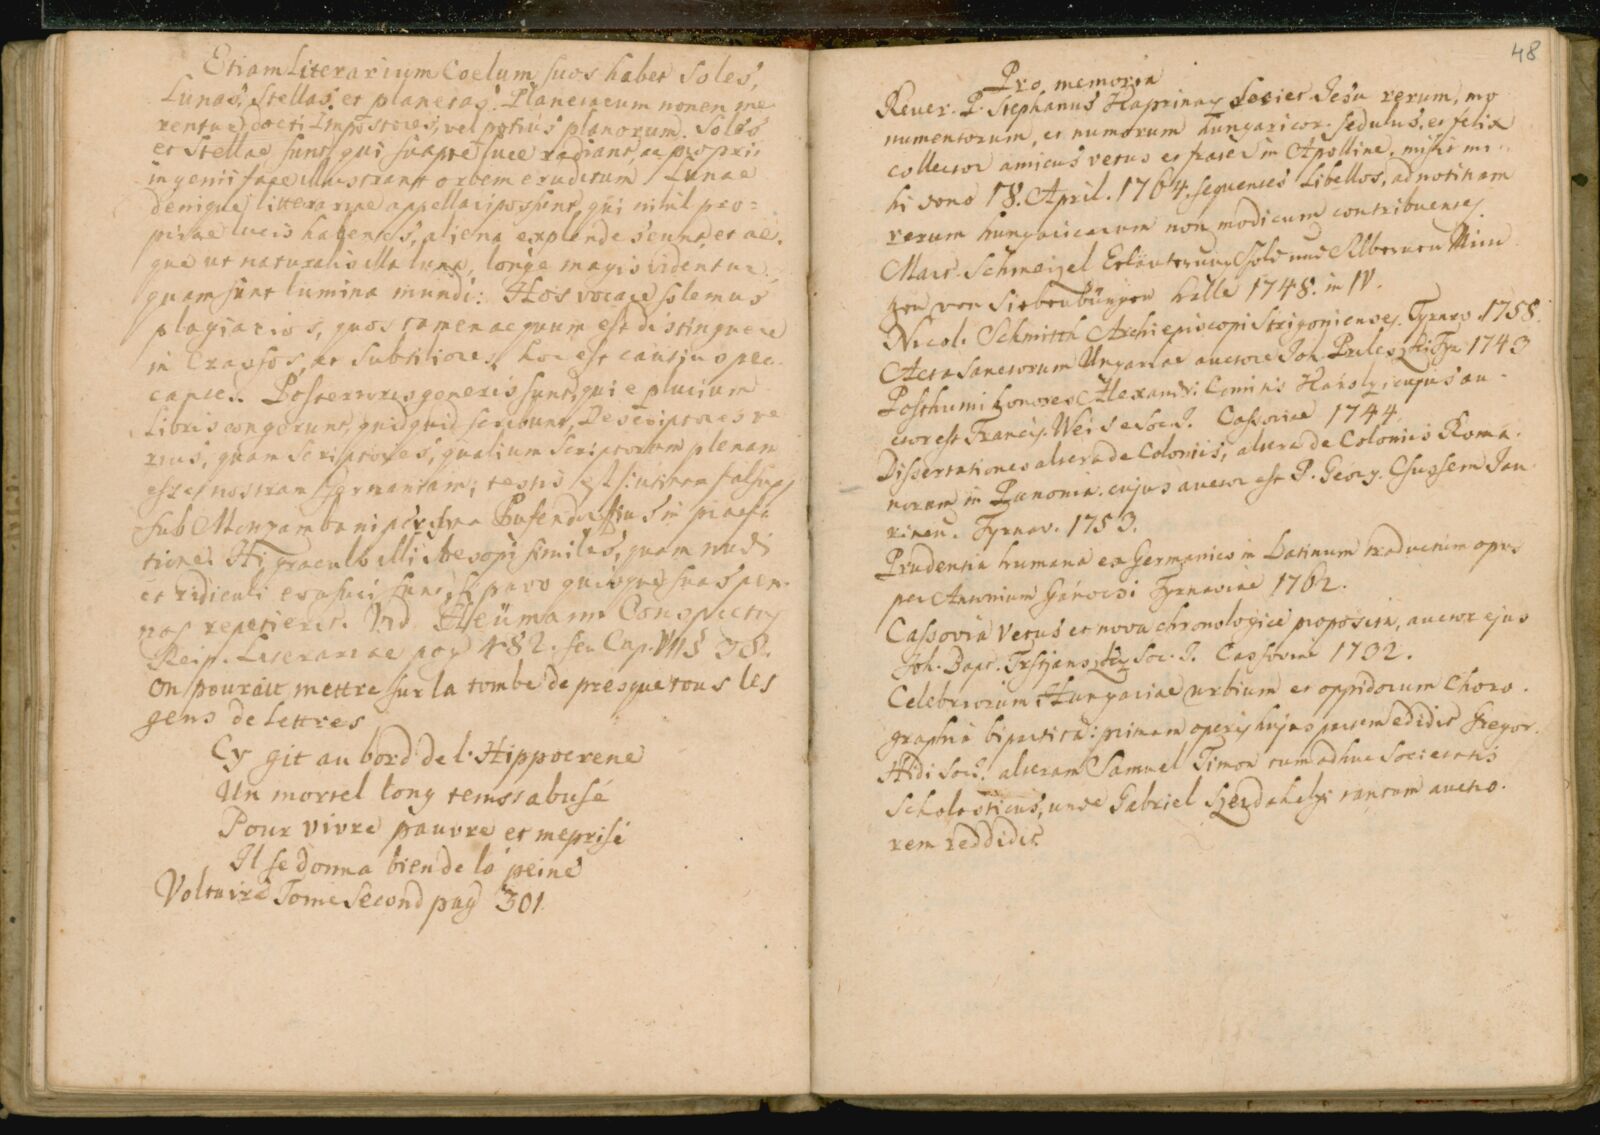 Etiam Literarium Coelum suos habet Soles,
Lunas, Stellas et planetas. Planetarum nomen me
rentur docti Impostores, vel potius planorum. Soles
et Stellae sunt, qui suapte luce radiant, ac proprii
ingenii face illustrant orbem eruditum Lunae
denique litterariae appellari possunt, qui nihil pro=
priae lucis habentes, aliena explendescunt, et ae.
que ut naturalis illa luna, longe magis videntur
quam sunt lumina mundi: Hos vocare solemus
plagiarios, quos tamen aequum est distinguere
in Crassos, et Subtiliores, hoc est cautius pec.
cantes. Posterioris generis sunt, qui e plurium
Libris congerunt, quidquid scribunt, Descriptores ve
rius, quam Scriptores, qualium Scriptorum plenam
esse nostram Germaniam, testis est
sub Monzambani persona Pufendorffius in praefa
tione. Hi graculo illi Aesopi similes, quam nudi
et ridiculi evasuri sunt, si pavo quisque suas pen.
nas repetierit. Vid. Heümann Conspectus
Reip. Literariae pag 482. seu Cap. VII § 38.
On pourait mettre sur la tombe de presque tous les
gens de lettres
Cy git au bord de l'Hippocrene
Un mortel long tems abusé
Pour vivre pauvre et meprisé
Il se donna bien de la peine
Voltaire Tome Second pag 301.
48
Pro memoria
Rever. P. Stephanus Kaprinay Societ Jesu rerum, mo
numentorum, et numorum hungaricor. sedulus, et felix
collector amicus verus et frater in Apolline, misit mi
hi dono 18. April. 1764. sequentes Libellos, ad notitiam
rerum hungaricarum non modicum contribuentes.
Mart. Schmeizel Erläuterung Gold und Silbernen Mün
zen von Siebenbürgen Halle 1748. in IV.
Nicol. Schmitth Archiepiscopi Strigonienses. Tyrnav. 1758.
Acta Sanctorum Ungariae auctore Joh. Tyr 1743
Posthumi honores Alexandri Comitis Károly, cujus au
ctor est Francis. Weis e Soc. J. Cassoviae 1744.
Dissertationes altera de Coloniis, altera de Coloniis Roma
norum in Panonia. cujus auctor est P. Georg. Jau
rinen. Tyrnav. 1753.
Prudentia humana ex Germanico in Latinum traductum opus
per Antonium Gánoczi Tyrnaviae 1762.
Cassovia Vetus et nova chronologice proposita, auctor ejus
Joh. Bapt. Soc. J. Cassoviae 1732.
Celebriorum Hungariae urbium et oppidorum Choro.
graphia bipartita: primam operis hujus partem edidit Gregor.
Hidi Soc J. alteram Samuel Timon tum adhuc Societatis
Scholasticus, unde Gabriel Szerdahelyi tantum aucto.
rem reddidit